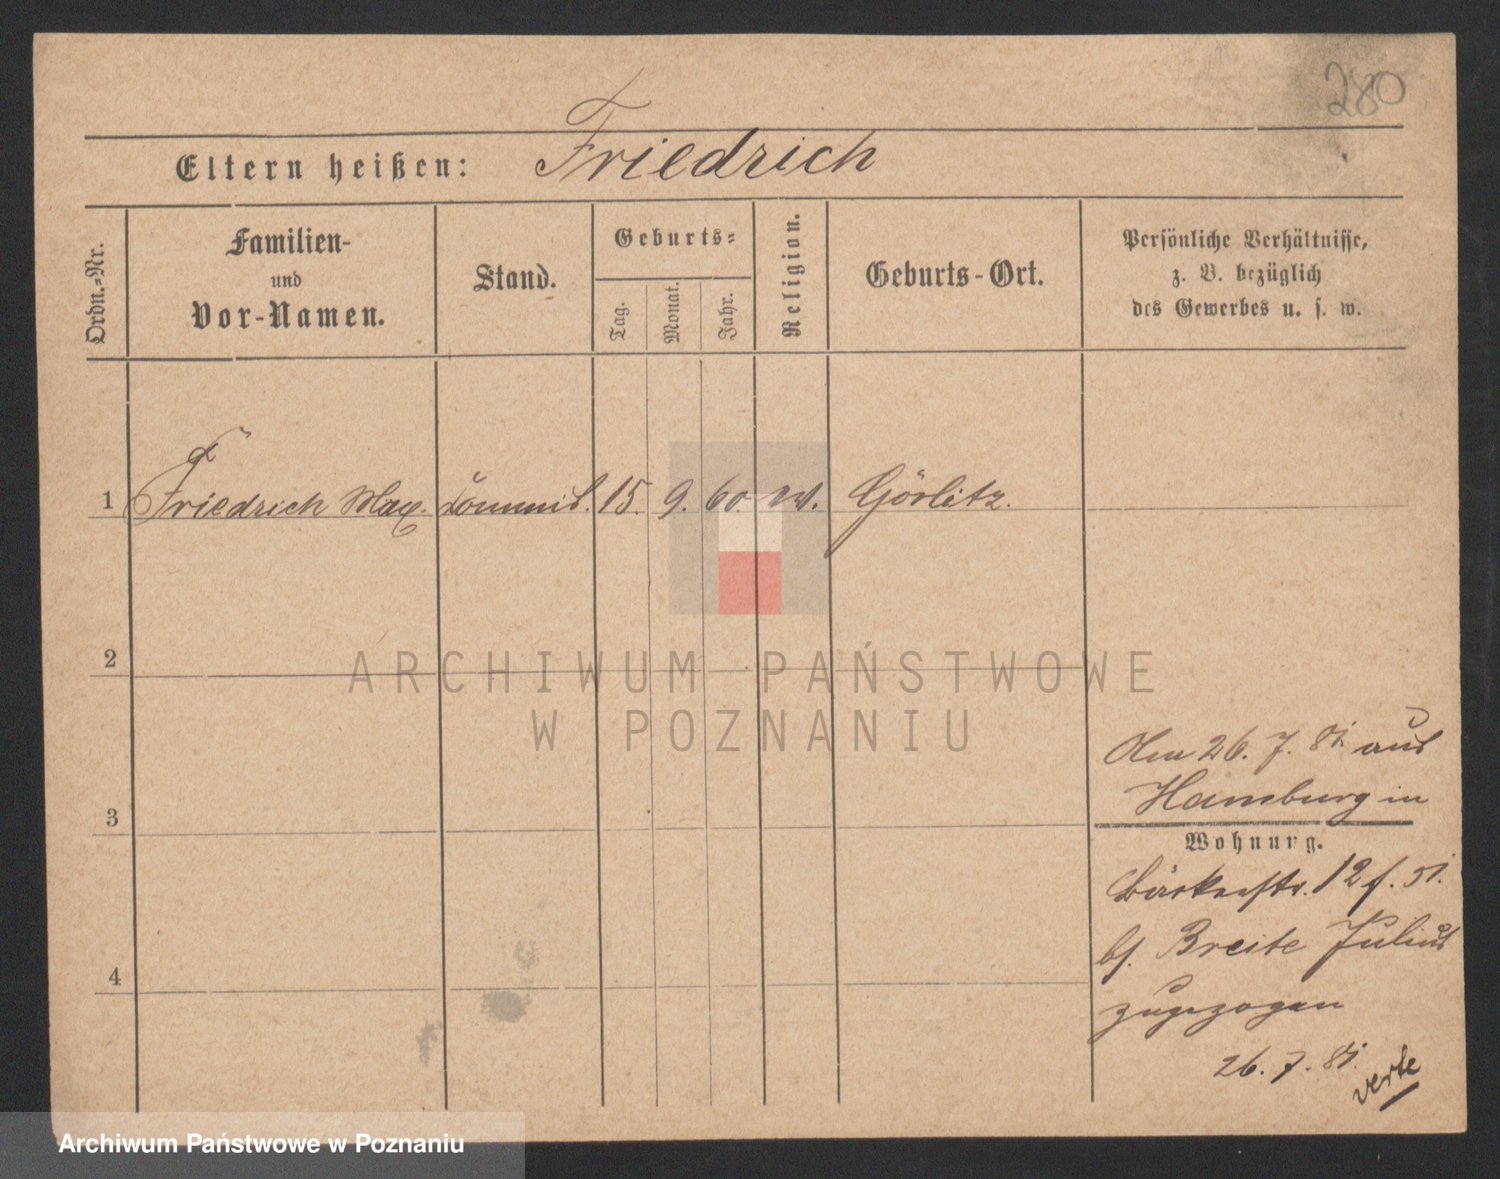 280
Eltern heißen: Friedrich
Ordn.-Nr.
Familien-
und
Vor-Namen.
Stand.
Geburts-
Tag.
Monat.
Jahr.
Religion.
Geburts-Ort.
Persönliche Verhältnisse,
z. B. bezüglich
des Gewerbes u. s. w.
1 Friedrich Max. Commis. 15. 9. 60. ev. Görlitz.
2
ARCHIWUM PAŃSTWOWE
W POZNANIU
3
4
Am 26. 7. 81. aus
Hamburg in
Wohnung.
Bäckerstr. 12
b/. Breite Julius
zugezogen
26. 7. 81.
verte
Archiwum Państwowe w Poznaniu